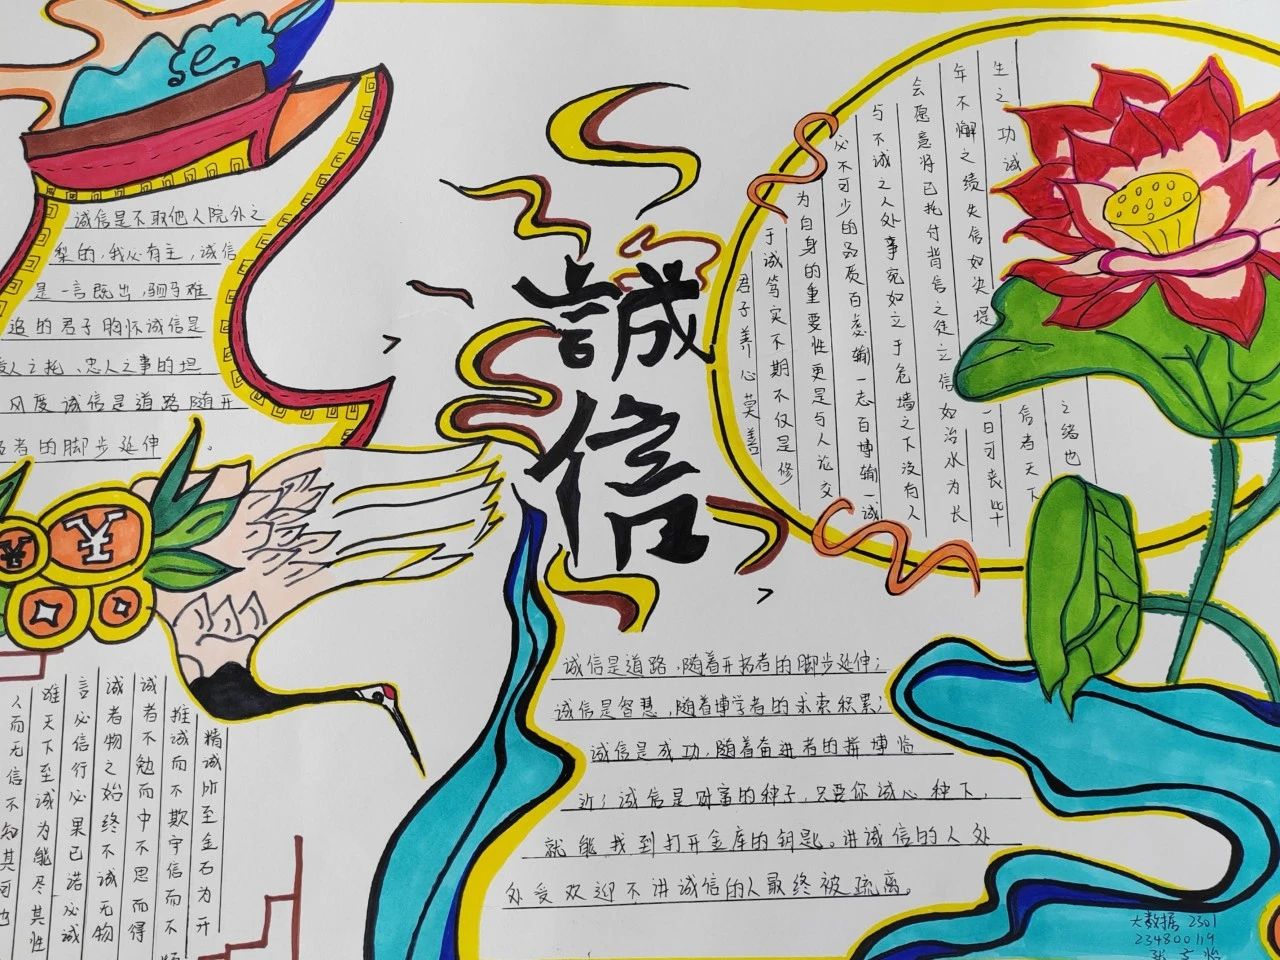 誠信
诚信是不取他人院外之
梨的,我必有主,诚信
是一言既出,驷马难
追的君子胸怀诚信是
人之托、忠人之事的坦
风度诚信是道路随开
者的脚步延伸。
君子养心莫善
于诚笃实不期不仅是修
为自身的重要性更是与人论交
必不可少的品质百虑输一志百博输一诚
与不诚之人处事宛如立于危墙之下没有人
会愿意将已托付背信之徒之信如治水为长
年不懈之绩失信如决堤
一日可丧毕
生之功诚
信者天下
之绪也
精诚所至金石为开
推诚而不欺守信而不
诚者不勉而中不思而得
诚者物之始终不诚无物
言必信行必果已诺必诚
唯天下至诚为能尽其性
人而无信不知其可也
诚信是道路,随着开拓者的脚步延伸;
诚信是智慧,随着博学者的求索积累;
诚信是成功,随着奋进者的拼博临
近;诚信是财富的种子,只要你诚心种下,
就能找到打开金库的钥匙。讲诚信的人处
处受欢迎不讲诚信的人最终被疏离。
大数据 2301
234800119
张